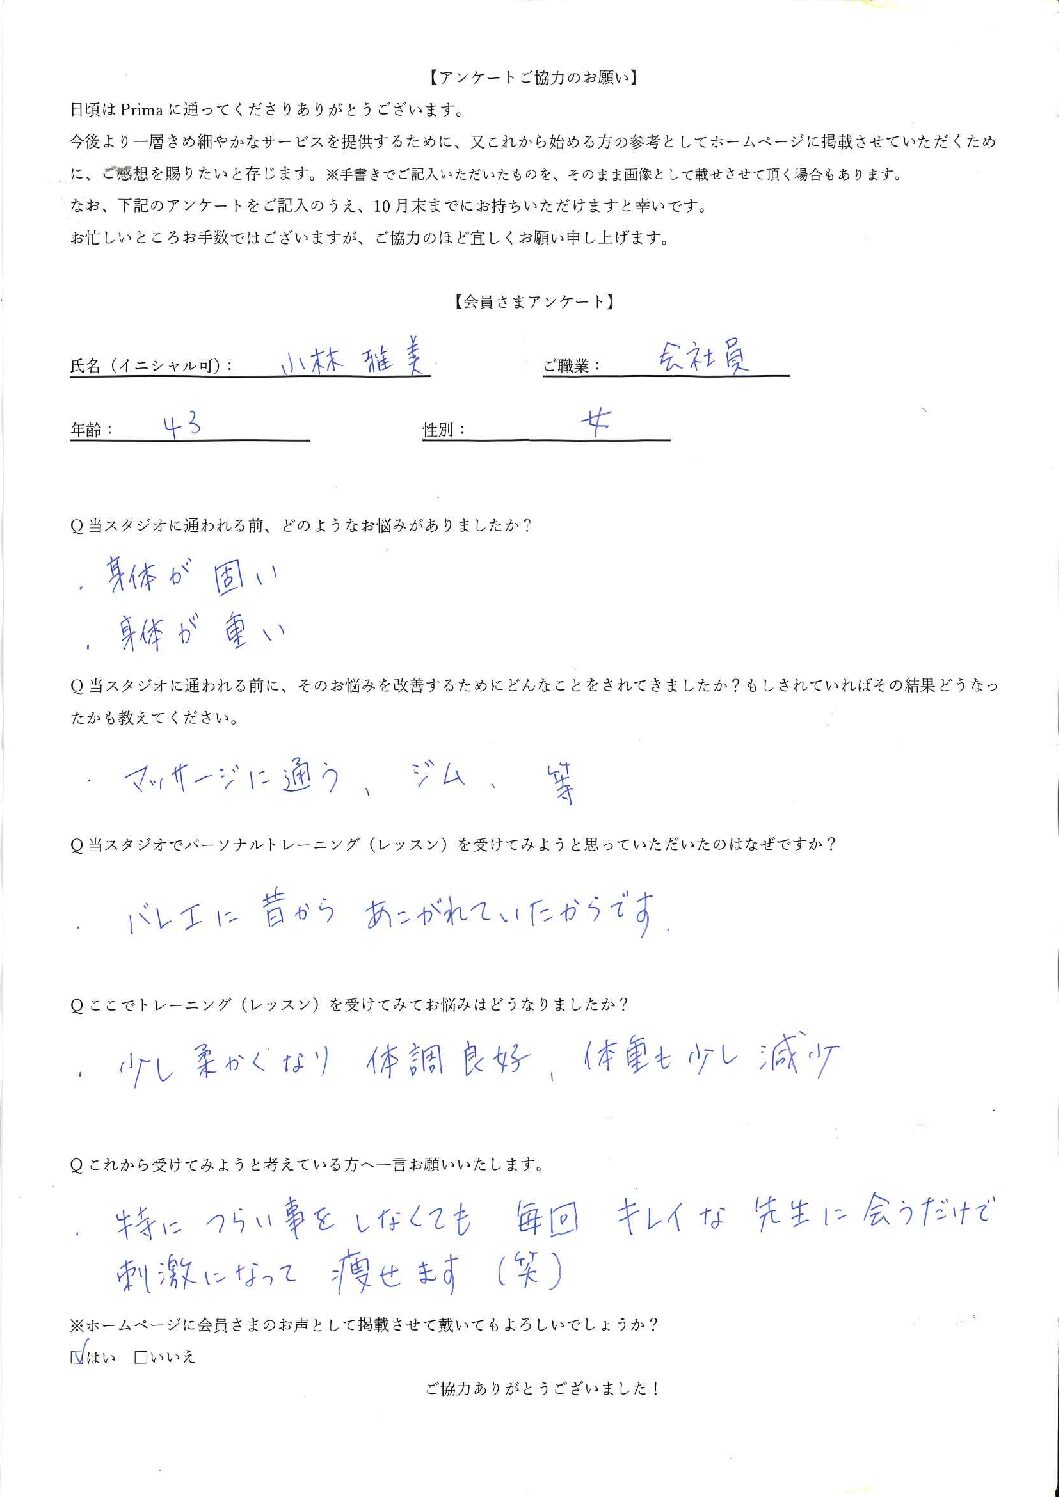 【アンケートご協力のお願い】
日頃は Prima に通ってくださりありがとうございます。
今後より一層きめ細やかなサービスを提供するために、又これから始める方の参考としてホームページに掲載させていただくため
に、ご感想を賜りたいと存じます。※手書きでご記入いただいたものを、そのまま画像として載せさせて頂く場合もあります。
なお、下記のアンケートをご記入のうえ、10 月末までにお持ちいただけますと幸いです。
お忙しいところお手数ではございますが、ご協力のほど宜しくお願い申し上げます。
【会員さまアンケート】
氏名（イニシャル可）： 小林 雅美 ご職業： 会社員
年齢： 43 性別： 女
Q 当スタジオに通われる前、どのようなお悩みがありましたか？
・身体が固い
・身体が重い
Q 当スタジオに通われる前に、そのお悩みを改善するためにどんなことをされてきましたか？もしされていればその結果どうなっ
たかも教えてください。
・マッサージに通う、ジム、等
Q 当スタジオでパーソナルトレーニング（レッスン）を受けてみようと思っていただいたのはなぜですか？
・バレエに昔から あこがれていたからです.
Q ここでトレーニング（レッスン）を受けてみてお悩みはどうなりましたか？
・少し柔かくなり 体調良好、体重も少し減少
Q これから受けてみようと考えている方へ一言お願いいたします。
・特に つらい事をしなくても 毎回 キレイな 先生に会うだけで
刺激になって 痩せます（笑）
※ホームページに会員さまのお声として掲載させて戴いてもよろしいでしょうか？
☑はい □いいえ
ご協力ありがとうございました！